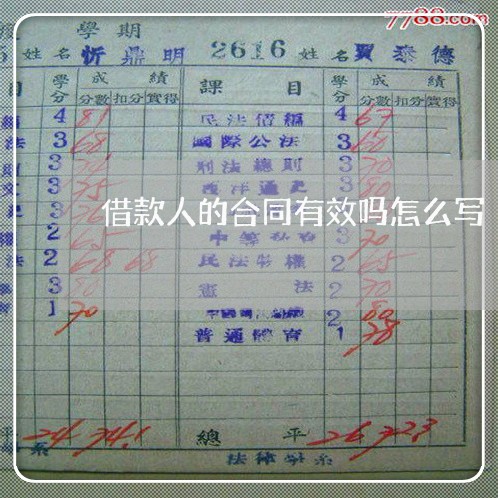 7788.com
學期
姓名 忻鼎明 2616 姓名 賈泰德
目 學分 成績 課目 學分 成績
分數 扣分 實得 分數 扣分 實得
4 81 民法債編 4 67
法 3 68 國際公法 3 60
3 刑法總則 3 70
3 75 西洋通史 3 80
借款人的合同有效吗怎么写
2 65 3 70
法 2 68 68 民法物權 2 65
3 80 憲法 2 70
1 70 2 80
普通體育 1 78
平 24 74.1 總平 26 72.3
系 法律學系